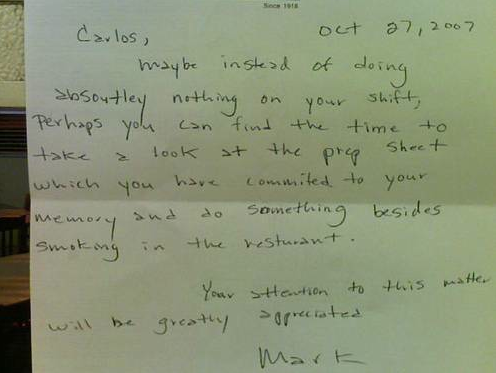 Since 1918
Carlos, Oct 27, 2007
maybe instead of doing
absoutley nothing on your shift,
Perhaps you can find the time to
take a look at the prep sheet
which you have commited to your
memory and do something besides
smoking in the resturant.
Your attention to this matter
will be greatly appreciated
Mark